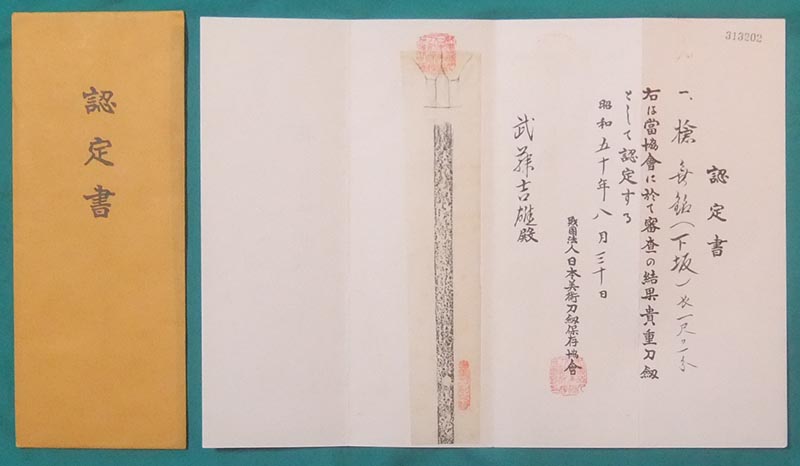 認定書
313202
認定書
一、槍 無銘(下坂)長一尺
右は當協會に於て審査の結果貴重刀剣
として認定する
昭和五十年八月三十日
財團法人日本美術刀剣保存協會
武藤吉雄殿